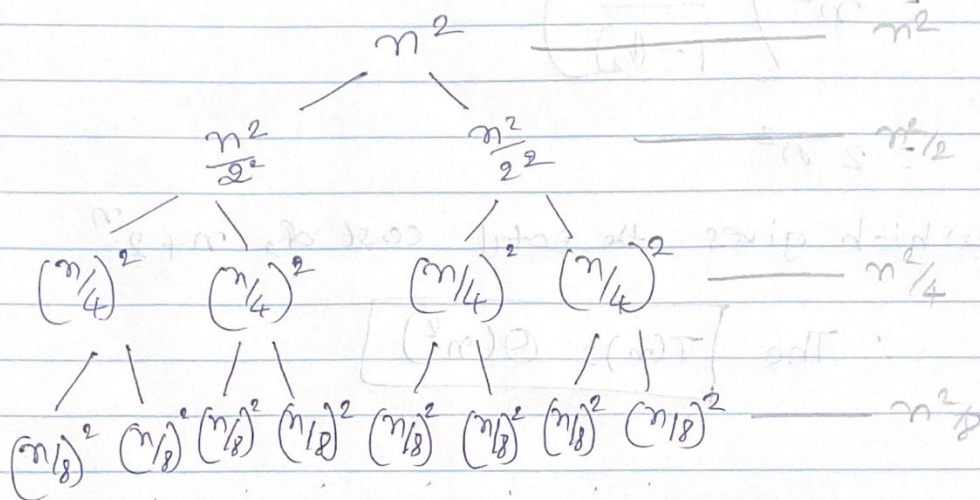 n² n²
n²/2² n²/2² n²/2
(n/4)² (n/4)² (n/4)² (n/4)² n²/4
(n/8)² (n/8)² (n/8)² (n/8)² (n/8)² (n/8)² (n/8)² (n/8)² n²/8